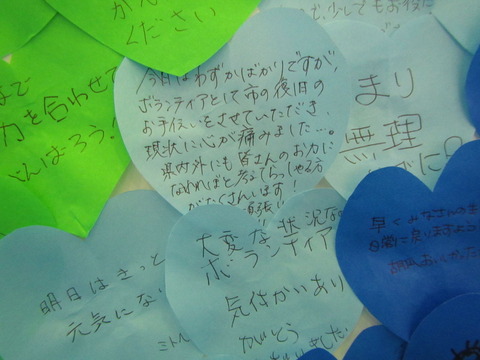 ください
力を合わせて
がんばろう
今日はわずかばかりですが、
ボランティアとして市の復旧の
お手伝いをさせていただき、
現状に心が痛みました…。
県内外にも皆さんのお力に
なれればと考えてらっしゃる方
がたくさんいます!
頑張!!
まり
無理
大変な状況な
ボランティア
気付かいあり
がとう
ました
明日はきっと
元気にな
早くみなさんの
日常に戻りますよう